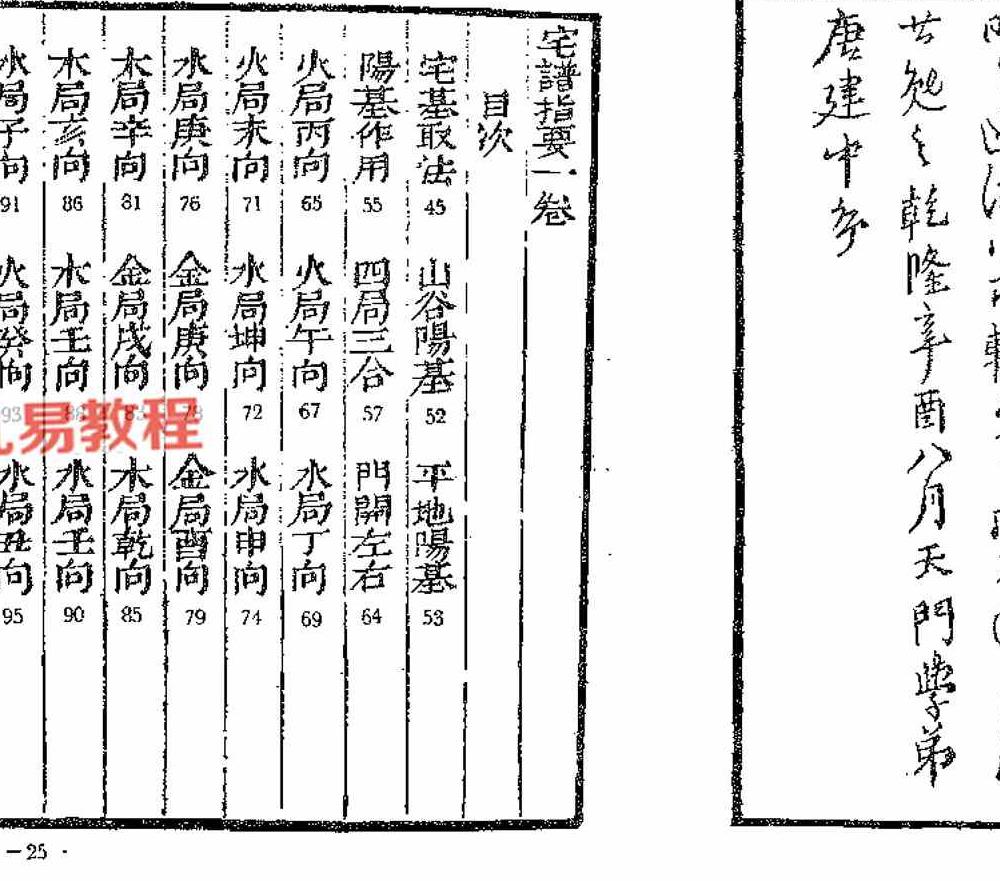 之乾隆辛酉八月天門學弟
唐建中序
宅譜指要一卷
目次
宅基取法 45 山谷陽基 52 平地陽基 53
陽基作用 55 四局三合 57 門開左右 64
火局丙向 65 火局午向 67 水局丁向 69
火局未向 71 水局坤向 72 水局申向 74
水局庚向 76 金局庚向 78 金局酉向 79
木局辛向 81 金局戌向 83 木局乾向 85
木局亥向 86 木局壬向 88 水局壬向 90
水局子向 91 火局癸向 93 水局丑向 95
易教程
－25 ·